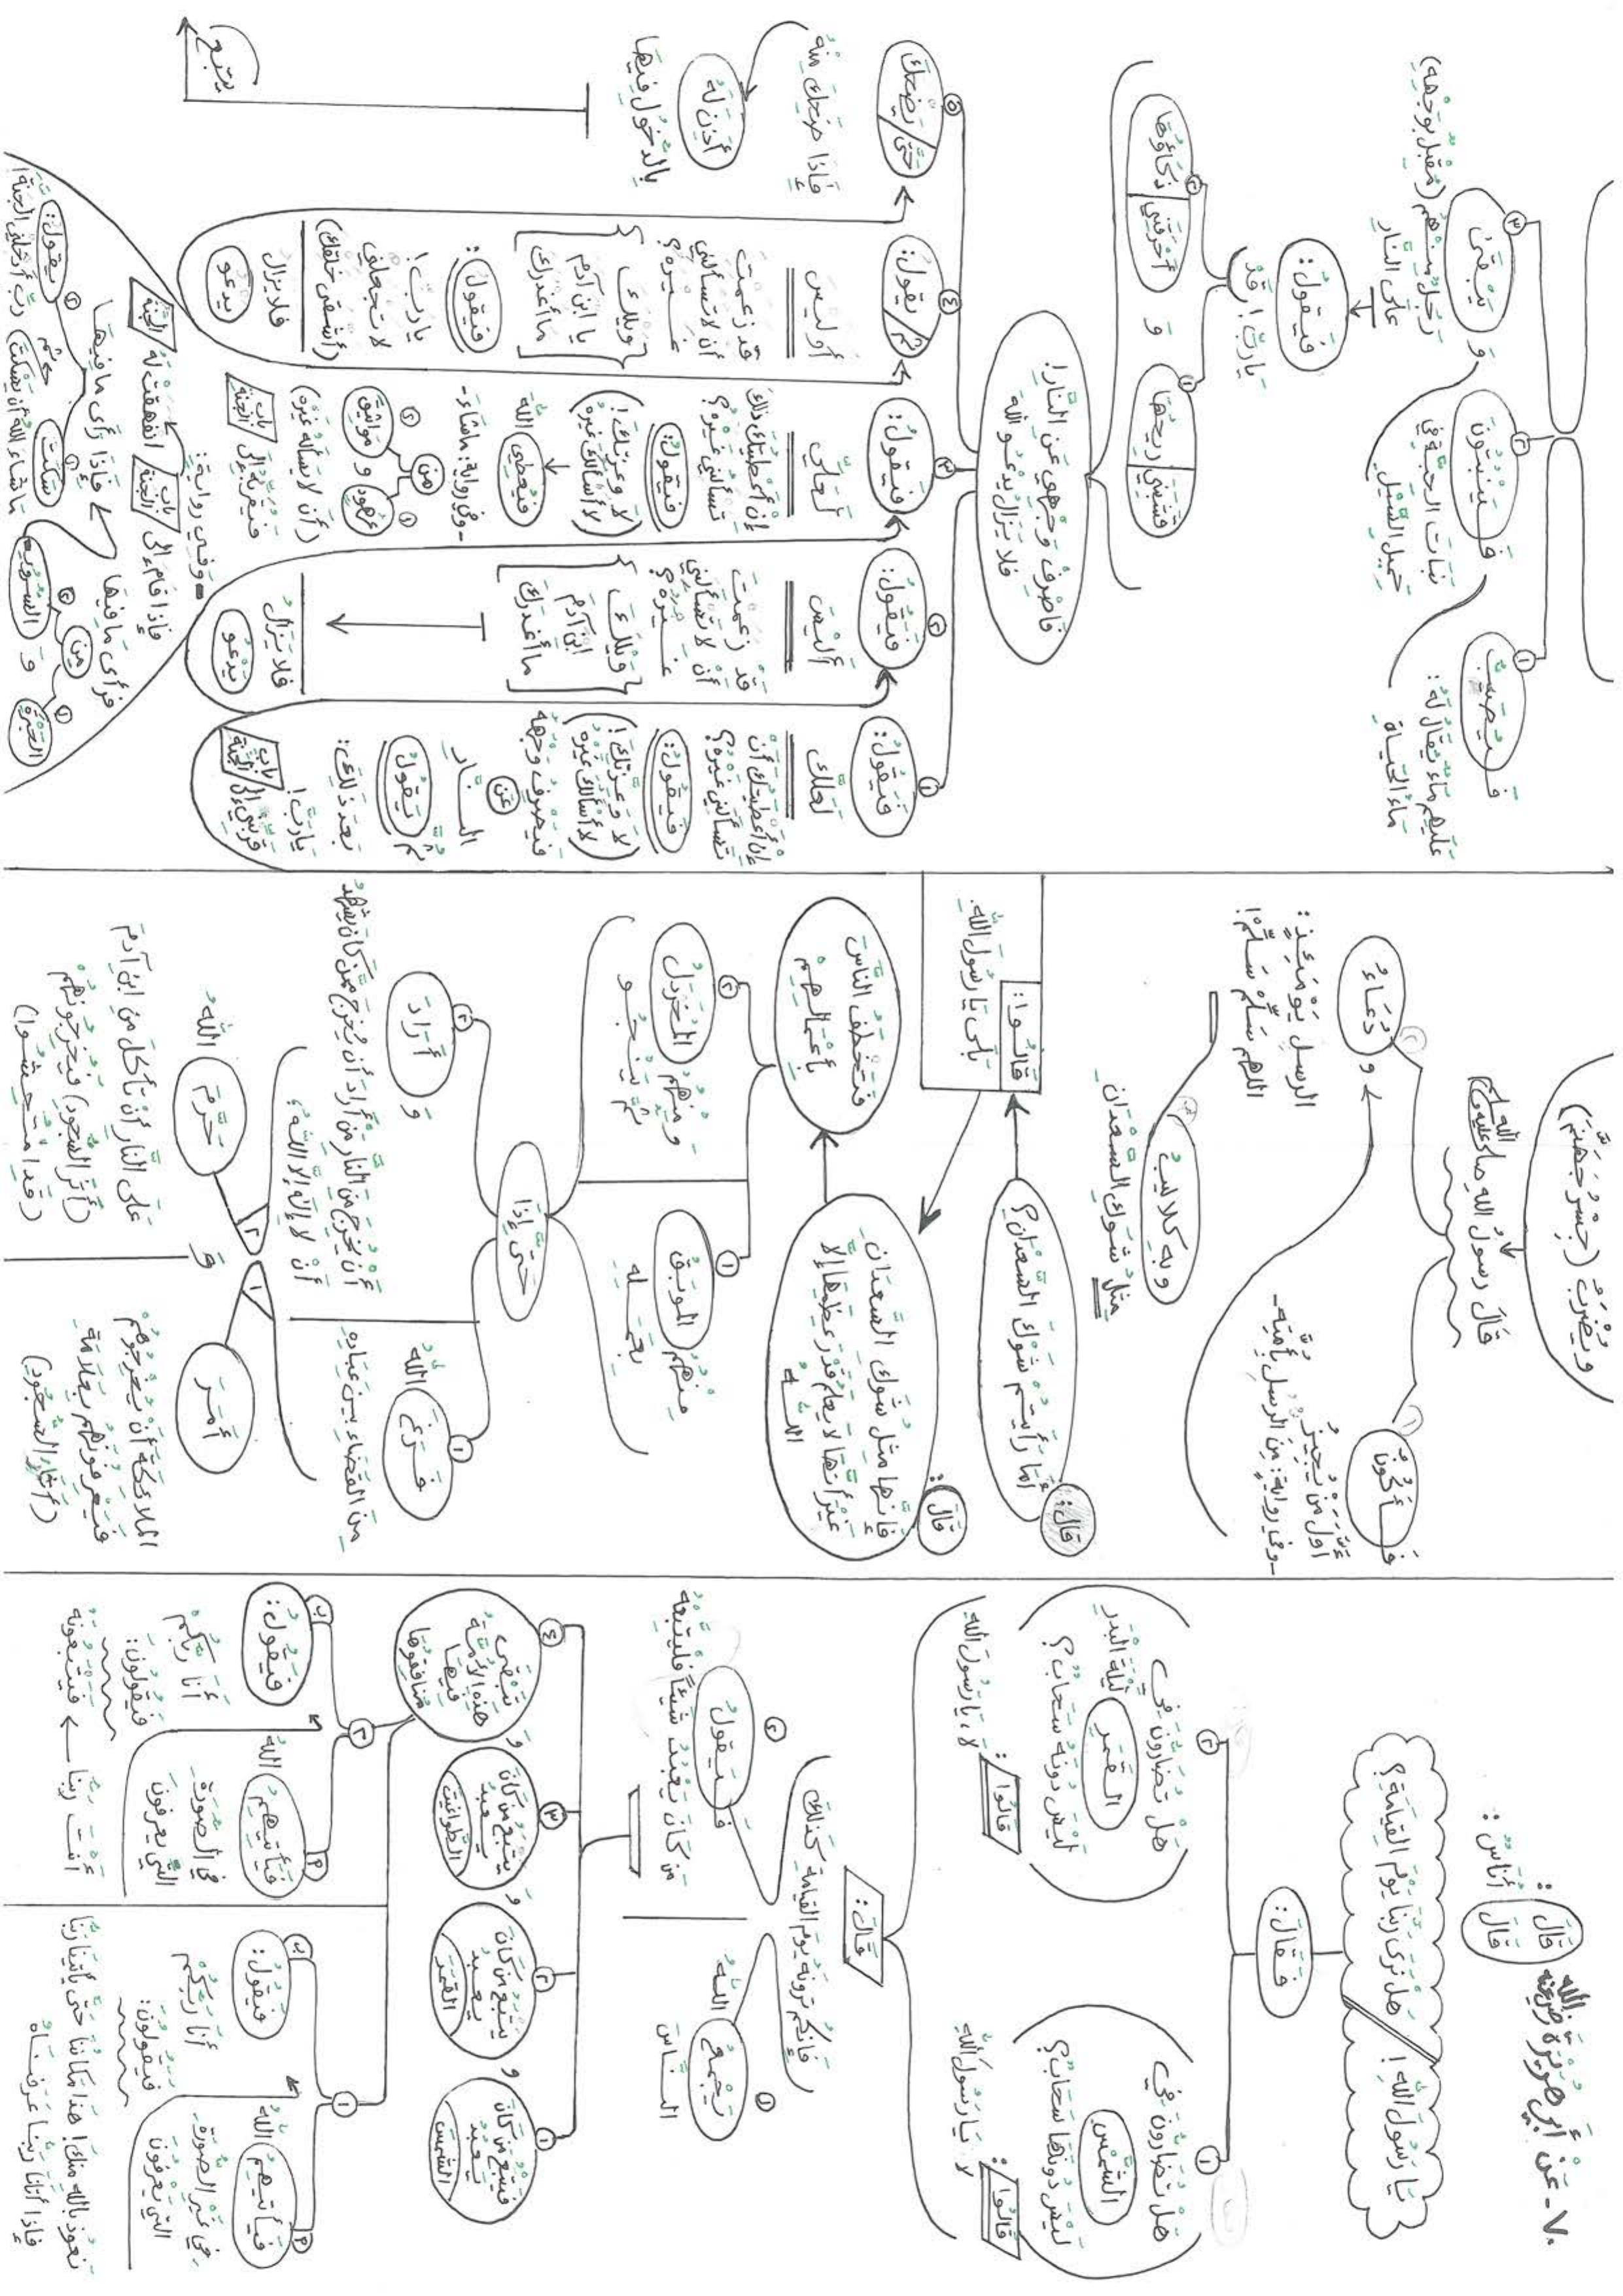 ٧٠- عَنْ أَبِي هُرَيْرَةَ رضي الله عنه
قَالَ :
قَالَ أُنَاسٌ :
يَا رَسُولَ اللهِ! هَلْ نَرَى رَبَّنَا يَوْمَ القِيَامَةِ؟
فَقَالَ :
١
هَلْ تُضَارُّونَ فِي
الشَّمْسِ
لَيْسَ دُونَهَا سَحَابٌ؟
قَالُوا :
لَا يَا رَسُولَ اللهِ
٢
هَلْ تُضَارُّونَ فِي
القَمَرِ
لَيْلَةَ البَدْرِ
لَيْسَ دُونَهُ سَحَابٌ؟
قَالُوا :
لَا، يَا رَسُولَ اللهِ
قَالَ :
فَإِنَّكُمْ تَرَوْنَهُ يَوْمَ القِيَامَةِ كَذَلِكَ
١
يَجْمَعُ اللهُ
النَّاسَ
٢
فَيَقُولُ
مَنْ كَانَ يَعْبُدُ شَيْئًا فَلْيَتَّبِعْهُ
١
فَيَتْبَعُ مَنْ كَانَ
يَعْبُدُ
الشَّمْسَ
و
٢
يَتْبَعُ مَنْ كَانَ
يَعْبُدُ
القَمَرَ
و
٣
يَتْبَعُ مَنْ كَانَ
يَعْبُدُ
الطَّوَاغِيتَ
و
٤
تَبْقَى
هَذِهِ الأُمَّةُ
فِيهَا
مُنَافِقُوهَا
١
فَيَأْتِيهِمُ اللهُ
فِي غَيْرِ الصُّورَةِ
الَّتِي يَعْرِفُونَ
ب
فَيَقُولُ :
أَنَا رَبُّكُمْ
فَيَقُولُونَ :
نَعُوذُ بِاللهِ مِنْكَ! هَذَا مَكَانُنَا حَتَّى يَأْتِيَنَا رَبُّنَا
فَإِذَا أَتَانَا رَبُّنَا عَرَفْنَاهُ
٢
فَيَأْتِيهِمُ اللهُ
فِي الصُّورَةِ
الَّتِي يَعْرِفُونَ
ب
فَيَقُولُ :
أَنَا رَبُّكُمْ
فَيَقُولُونَ :
أَنْتَ رَبُّنَا ← فَيَتْبَعُونَهُ
وَيُضْرَبُ (جِسْرُ جَهَنَّمَ)
قَالَ رَسُولُ اللهِ صلى الله عليه وسلم
١
فَأَكُونُ
أَوَّلَ مَنْ يُجِيزُ
-وفي رواية: مِنَ الرُّسُلِ بِأُمَّتِهِ-
٢
و دُعَاءُ
الرُّسُلِ يَوْمَئِذٍ :
اللهم سَلِّمْ سَلِّمْ!
٣
وَبِهِ كَلَالِيبُ
مِثْلُ شَوْكِ السَّعْدَانِ
قَالَ :
أَمَا رَأَيْتُمْ شَوْكَ السَّعْدَانِ؟
قَالُوا :
بَلَى يَا رَسُولَ اللهِ.
قَالَ :
فَإِنَّهَا مِثْلُ شَوْكِ السَّعْدَانِ
غَيْرَ أَنَّهَا لَا يَعْلَمُ قَدْرَ عِظَمِهَا إِلَّا
اللهُ
فَتَخْطَفُ النَّاسَ
بِأَعْمَالِهِمْ
١
مِنْهُمُ المُوبَقُ
بِعَمَلِهِ
٢
و مِنْهُمُ المُخَرْدَلُ
ثُمَّ يَنْجُو
حَتَّى إِذَا
١
فَرَغَ اللهُ
مِنَ القَضَاءِ بَيْنَ عِبَادِهِ
و
٢
أَرَادَ
أَنْ يُخْرِجَ مِنَ النَّارِ مَنْ أَرَادَ أَنْ يُخْرِجَ مِمَّنْ كَانَ يَشْهَدُ
أَنْ لَا إِلَهَ إِلَّا اللهُ،
١
أَمَرَ
المَلَائِكَةَ أَنْ يُخْرِجُوهُمْ
فَيَعْرِفُونَهُمْ بِعَلَامَةِ
(آثَارِ السُّجُودِ)
و
٢
حَرَّمَ اللهُ
عَلَى النَّارِ أَنْ تَأْكُلَ مِنِ ابْنِ آدَمَ
(أَثَرَ السُّجُودِ) فَيُخْرِجُونَهُمْ
(قَدِ امْتُحِشُوا)
١
فَيُصَبُّ
عَلَيْهِمْ مَاءٌ يُقَالُ لَهُ :
مَاءُ الحَيَاةِ
٢
فَيَنْبُتُونَ
نَبَاتَ الحِبَّةِ فِي
حَمِيلِ السَّيْلِ
٣
و يَبْقَى
رَجُلٌ مِنْهُمْ (مُقْبِلٌ بِوَجْهِهِ)
عَلَى النَّارِ
فَيَقُولُ :
يَا رَبِّ! قَدْ
١
قَشَبَنِي رِيحُهَا
و
٢
أَحْرَقَنِي ذَكَاؤُهَا
فَاصْرِفْ وَجْهِي عَنِ النَّارِ!
فَلَا يَزَالُ يَدْعُو اللهَ
١
فَيَقُولُ :
لَعَلَّكَ
إِنْ أَعْطَيْتُكَ أَنْ
تَسْأَلَنِي غَيْرَهُ؟
فَيَقُولُ :
(لَا وَعِزَّتِكَ!
لَا أَسْأَلُكَ غَيْرَهُ)
فَيَصْرِفُ وَجْهَهُ
عَنِ
النَّارِ
ثُمَّ يَقُولُ
بَعْدَ ذَلِكَ :
يَا رَبِّ!
قَرِّبْنِي إِلَى بَابِ الجَنَّةِ
٢
فَيَقُولُ :
أَلَيْسَ
قَدْ زَعَمْتَ
أَنْ لَا تَسْأَلَنِي
غَيْرَهُ؟
وَيْلَكَ
ابْنَ آدَمَ
مَا أَغْدَرَكَ
فَلَا يَزَالُ
يَدْعُو
٣
فَيَقُولُ :
لَعَلِّي
إِنْ أَعْطَيْتُكَ ذَلِكَ
تَسْأَلُنِي غَيْرَهُ؟
فَيَقُولُ :
(لَا وَعِزَّتِكَ!
لَا أَسْأَلُكَ غَيْرَهُ)
فَيُعْطِي اللهَ
-وفي رواية: مَا شَاءَ-
مِنْ
١
عُهُودٍ
و
٢
مَوَاثِيقَ
(أَنْ لَا يَسْأَلَهُ غَيْرَهُ)
فَيُقَرِّبُهُ إِلَى بَابِ الجَنَّةِ
= وفي رواية :
فَإِذَا قَامَ إِلَى بَابِ الجَنَّةِ انْفَهَقَتْ لَهُ الجَنَّةُ
فَرَأَى مَا فِيهَا
مِنَ
١
الحَبْرَةِ
و
٢
السُّرُورِ
فَإِذَا رَأَى مَا فِيهَا
١
سَكَتَ
مَا شَاءَ اللهُ أَنْ يَسْكُتَ
ثُمَّ
٢
يَقُولُ :
رَبِّ أَدْخِلْنِي الجَنَّةَ!
٤
ثُمَّ يَقُولُ :
أَوَلَيْسَ
قَدْ زَعَمْتَ
أَنْ لَا تَسْأَلَنِي
غَيْرَهُ؟
وَيْلَكَ
يَا ابْنَ آدَمَ
مَا أَغْدَرَكَ
فَيَقُولُ :
يَا رَبِّ!
لَا تَجْعَلْنِي
(أَشْقَى خَلْقِكَ)
فَلَا يَزَالُ
يَدْعُو
٥
حَتَّى يَضْحَكَ
فَإِذَا ضَحِكَ مِنْهُ
أَذِنَ لَهُ
بِالدُّخُولِ فِيهَا
يتبع